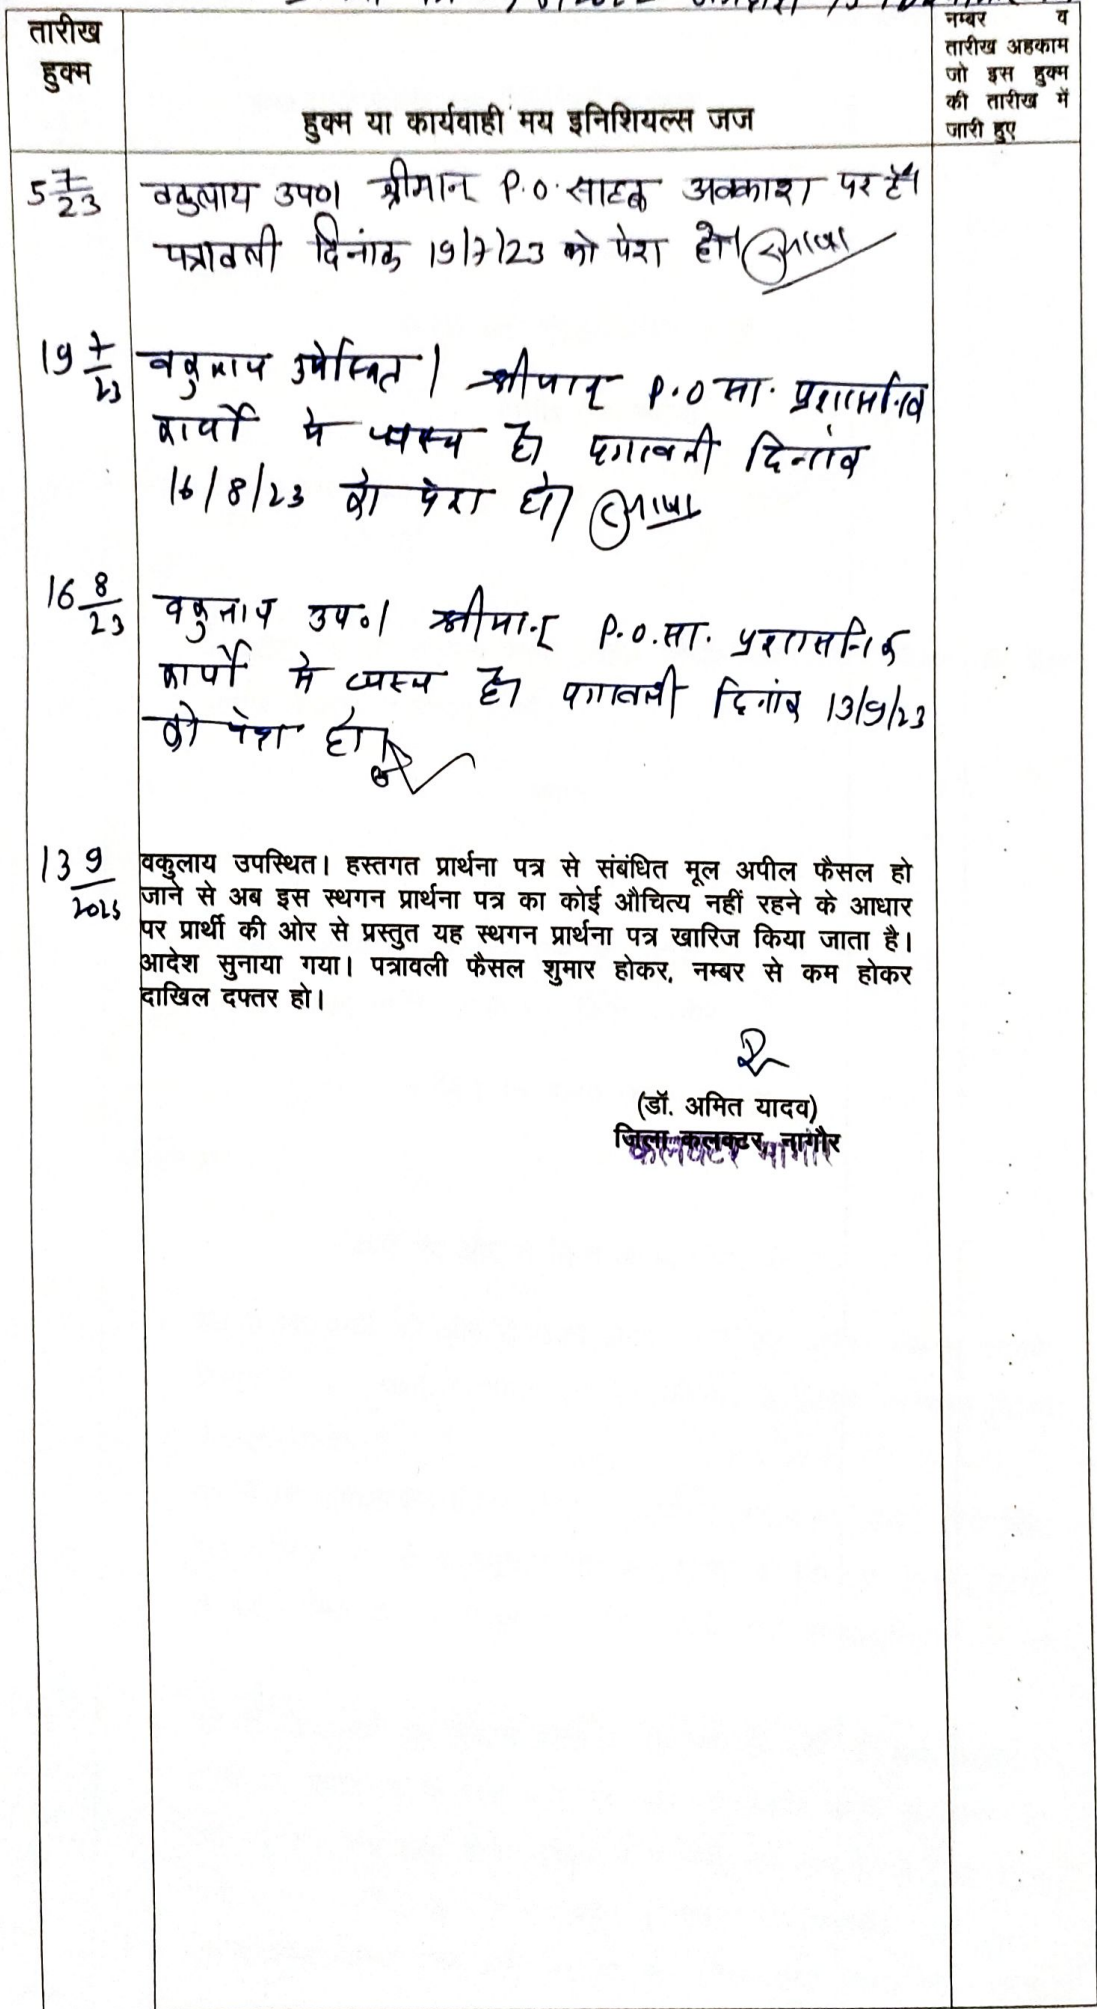 तारीख
हुक्म
हुक्म या कार्यवाही मय इनिशियल्स जज
नम्बर व
तारीख अहकाम
जो इस हुक्म
की तारीख में
जारी हुए
5 7/23 वकुलाय उप०। श्रीमान् P.O. साहब अवकाश पर है।
पत्रावली दिनांक 19/7/23 को पेश हो।
19 7/23 वकुलाय उपस्थित। श्रीमान् P.O सा. प्रशासनिक
कार्यों मे व्यस्त है। पत्रावली दिनांक
16/8/23 को पेश हो।
16 8/23 वकुलाय उप०। श्रीमान् P.O. सा. प्रशासनिक
कार्यों मे व्यस्त है। पत्रावली दिनांक 13/9/23
को पेश हो।
13 9/2023 वकुलाय उपस्थित। हस्तगत प्रार्थना पत्र से संबंधित मूल अपील फैसल हो
जाने से अब इस स्थगन प्रार्थना पत्र का कोई औचित्य नहीं रहने के आधार
पर प्रार्थी की ओर से प्रस्तुत यह स्थगन प्रार्थना पत्र खारिज किया जाता है।
आदेश सुनाया गया। पत्रावली फैसल शुमार होकर, नम्बर से कम होकर
दाखिल दफ्तर हो।
(डॉ. अमित यादव)
जिला कलक्टर, नागौर
कलक्टर नागौर